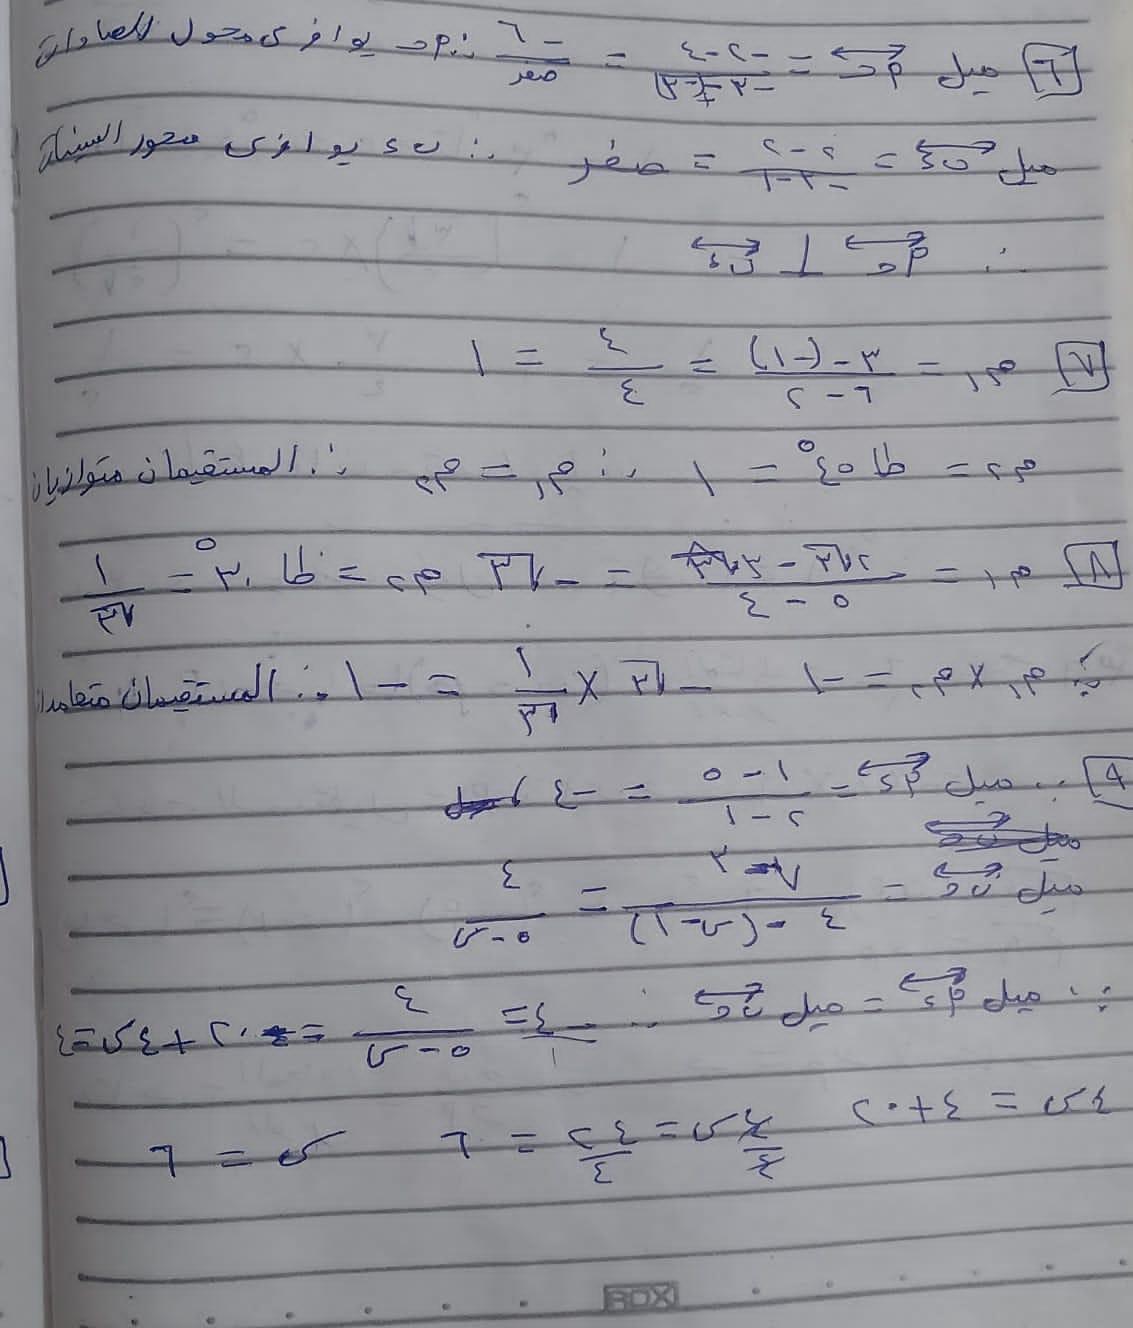 [٦] ميل أح = -٢-٤ / -٣-(-٣) = -٦ / صفر ∴ أح يوازى محور الصادات
ميل ب٤ = ٢-٢ / -٢-١ = صفر ∴ ب٤ يوازى محور السينات
∴ أح ⊥ ب٤
[٧] م١ = ٣-(-١) / ٦-٢ = ٤ / ٤ = ١
م٢ = طا ٤٥° = ١ ∴ م١ = م٢ ∴ المستقيمان متوازيان
[٨] م١ = ٢√٣ - ٣√٣ / ٥-٤ = -√٣ م٢ = طا ٣٠° = ١ / √٣
∵ م١ × م٢ = -١ -√٣ × ١ / √٣ = -١ ∴ المستقيمان متعامدان
[٩] ∵ ميل أء = ١-٥ / ٢-١ = -٤
ميل بح = ٧-٣ / ٤-(س-١) = ٤ / ٥-س
∵ ميل أء = ميل بح ∴ -٤ / ١ = ٤ / ٥-س = -٢٠+٤س=٤
٤س = ٤+٢٠
٤س / ٤ = ٢٤ / ٤ = ٦ س = ٦
ROX